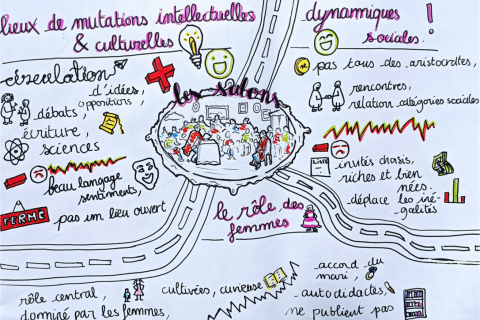 lieux de mutations intellectuelles
& culturelles
circulation
d'idées,
oppositions,
débats,
écriture,
sciences
beau langage
sentiments,
FERMÉ
pas un lieu ouvert
les salons
dynamiques
sociales !
pas tous des aristocrates,
rencontres,
relation catégories sociales
invités choisis,
riches et bien
nées.
déplace les iné-
galités
le rôle des
femmes
rôle central,
dominé par les femmes,
cultivées, curieuse
accord du
mari,
autodidactes,
ne publient pas